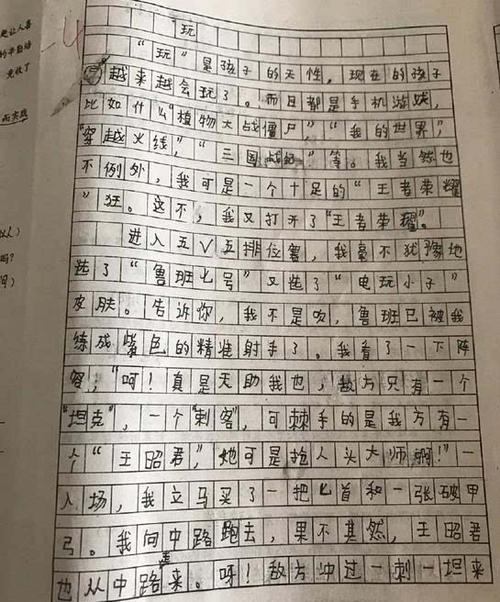 -4
玩
"玩"是孩子的天性，现在的孩子
越来越会玩了。而且都是手机游戏，
比如什么"植物大战僵尸"，"我的世界"，
"穿越火线"，"三国战纪"等。我当然也
不例外，我可是一个十足的"王者荣耀
"狂。这不，我又打开了"王者荣耀"。
进入五V五排位赛，我毫不犹豫地
选了"鲁班七号"又选了"电玩小子"
皮肤。告诉你，我不是吹，鲁班已被我
练成紫色的精准射手了。我看了一下阵
容，"呵！真是天助我也，敌方只有一个
"坦克"，一个"刺客"，可棘手的是我方有一
个"王昭君"，她可是抢人头大师啊！"一
入场，我立马买了一把匕首和一张破甲
弓。我向中路跑去，果不其然，王昭君
也从中路来。呀！敌方冲过一刺一坦来